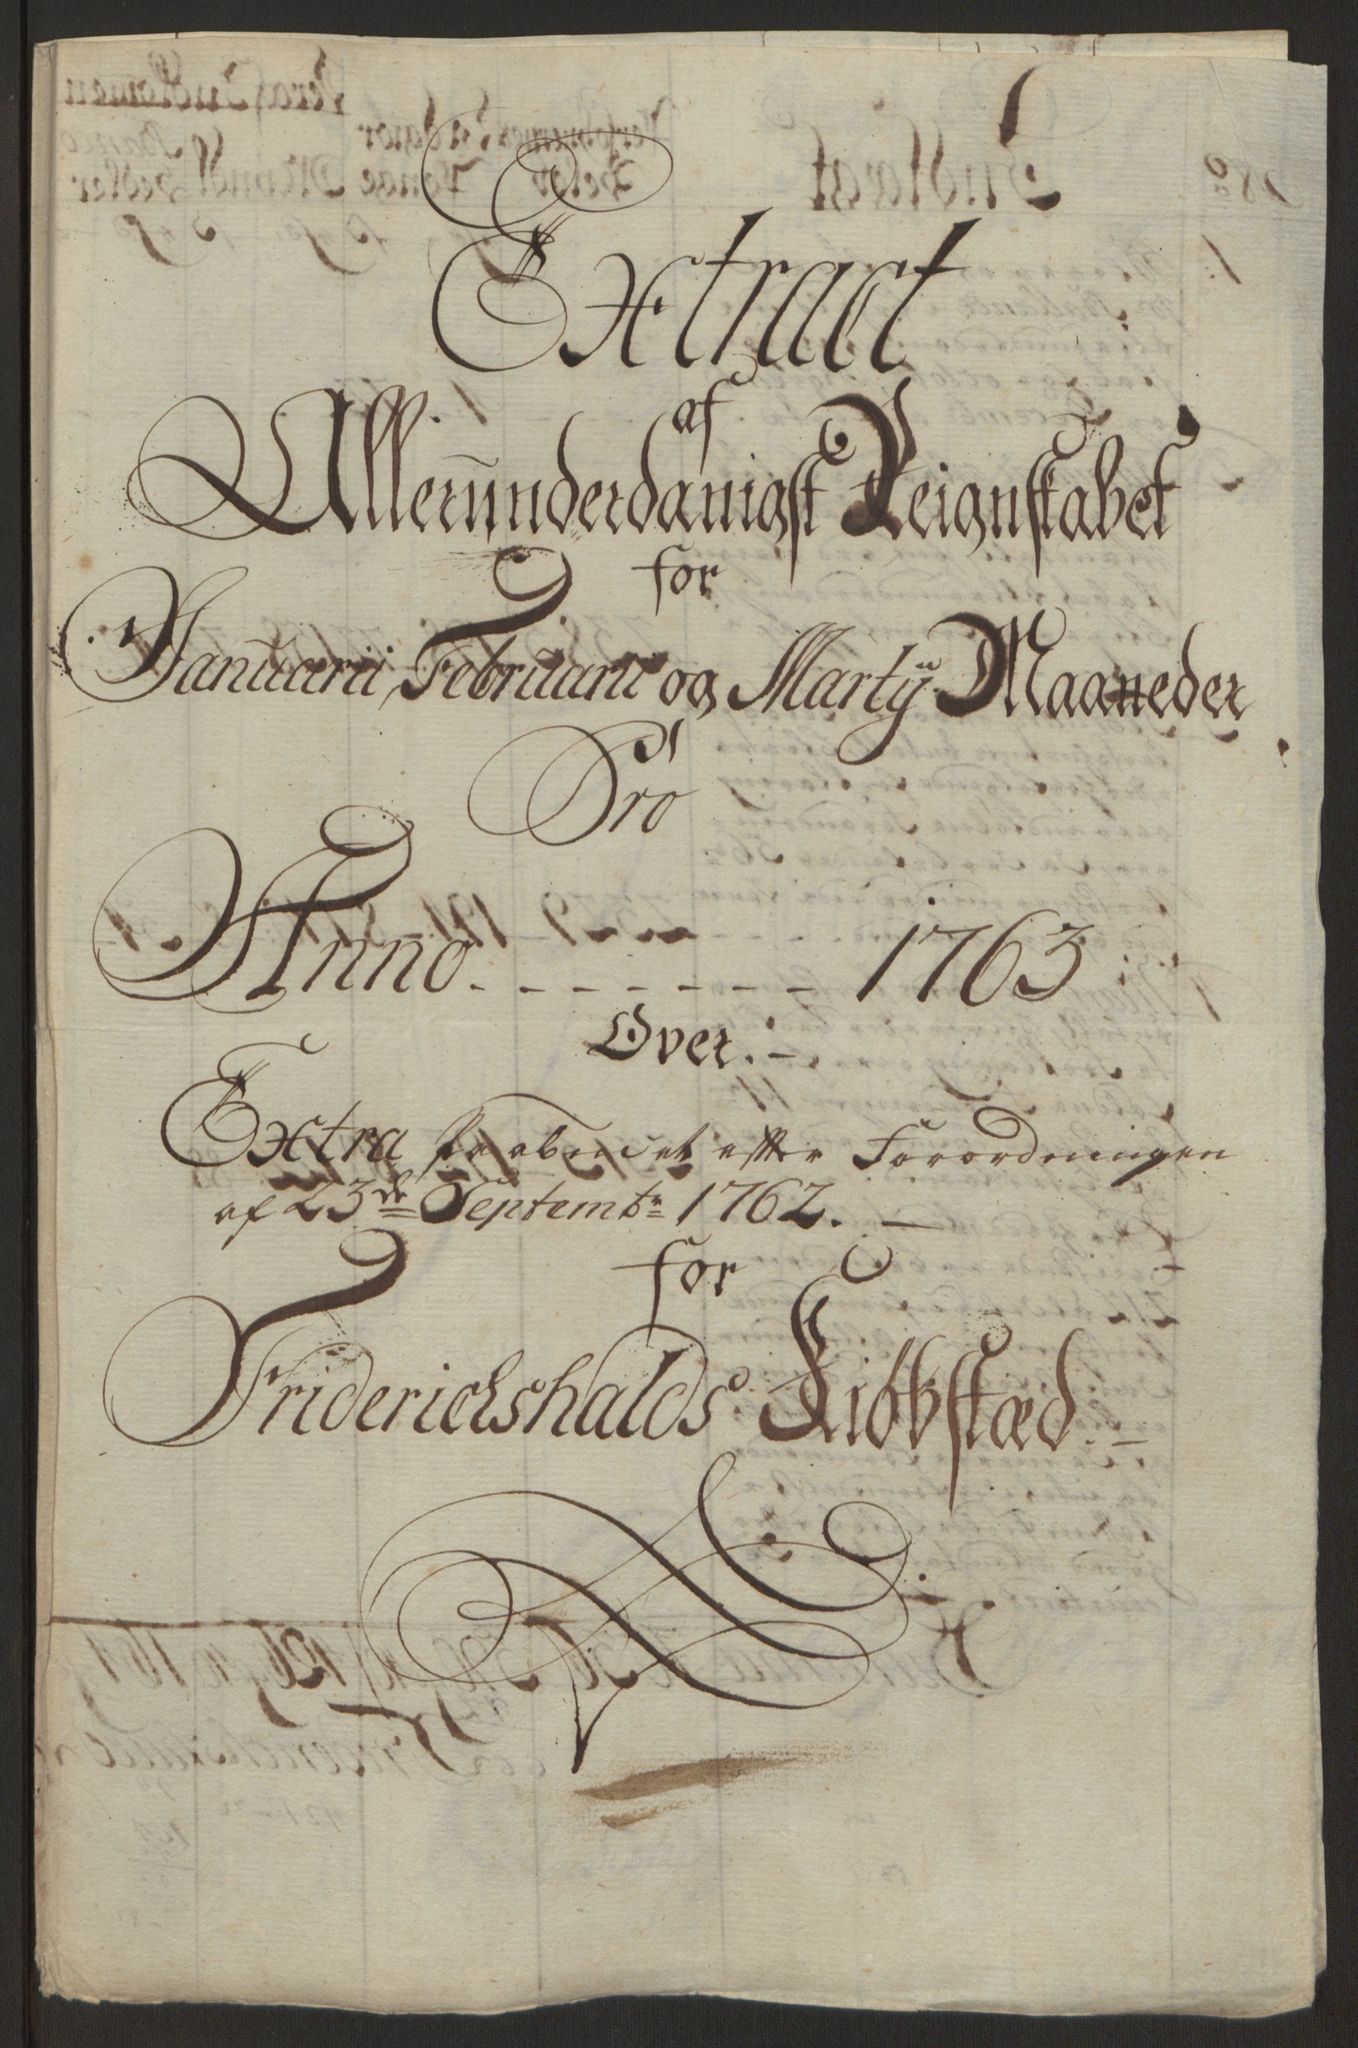 Extract
af
Allerunderdanigst Reignskabet
for
Januarii, Februarii og Martÿ Maaneder
Pro
Anno - - - - - - - 1763
Over. -
Extra skatten effter Forordningen
af 23de Septembr 1762. -
for
Friderichshalds Kiöbstæd. -